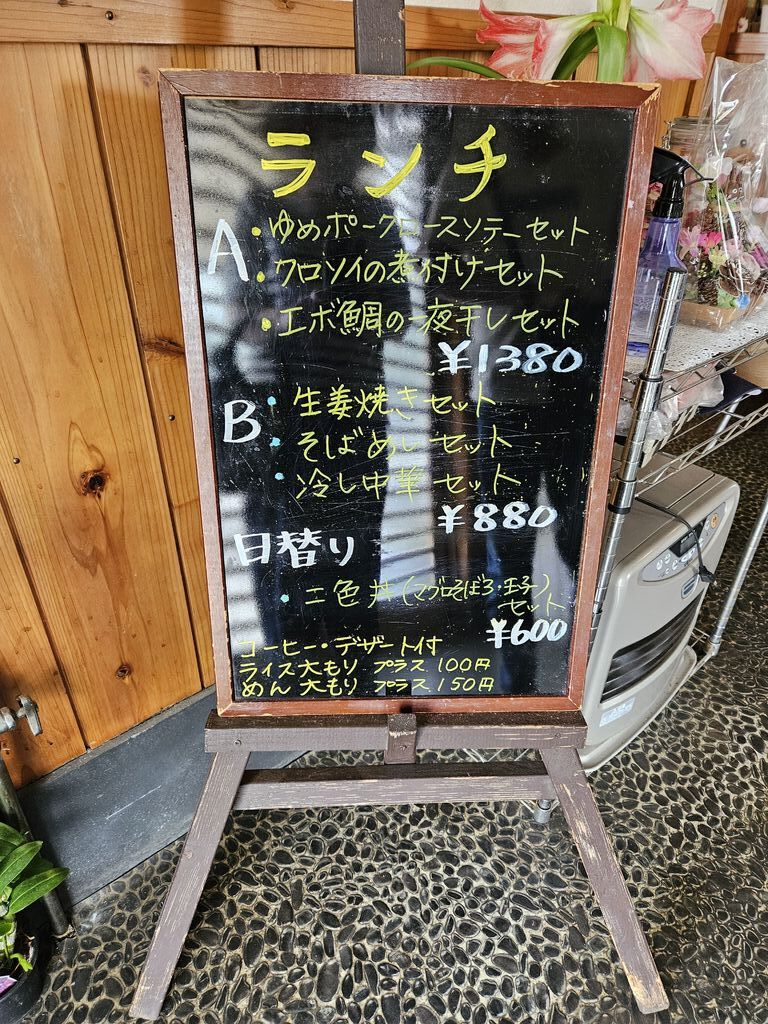 ランチ
A・ゆめポークロースソテーセット
・クロソイの煮付けセット
・エボ鯛の一夜干しセット
¥1380
B・生姜焼きセット
・そばめしセット
・冷し中華セット
¥880
日替り
・二色丼(マグロそぼろ・玉子)
セット
¥600
コーヒー・デザート付
ライス大もり プラス 100円
めん 大もり プラス 150円